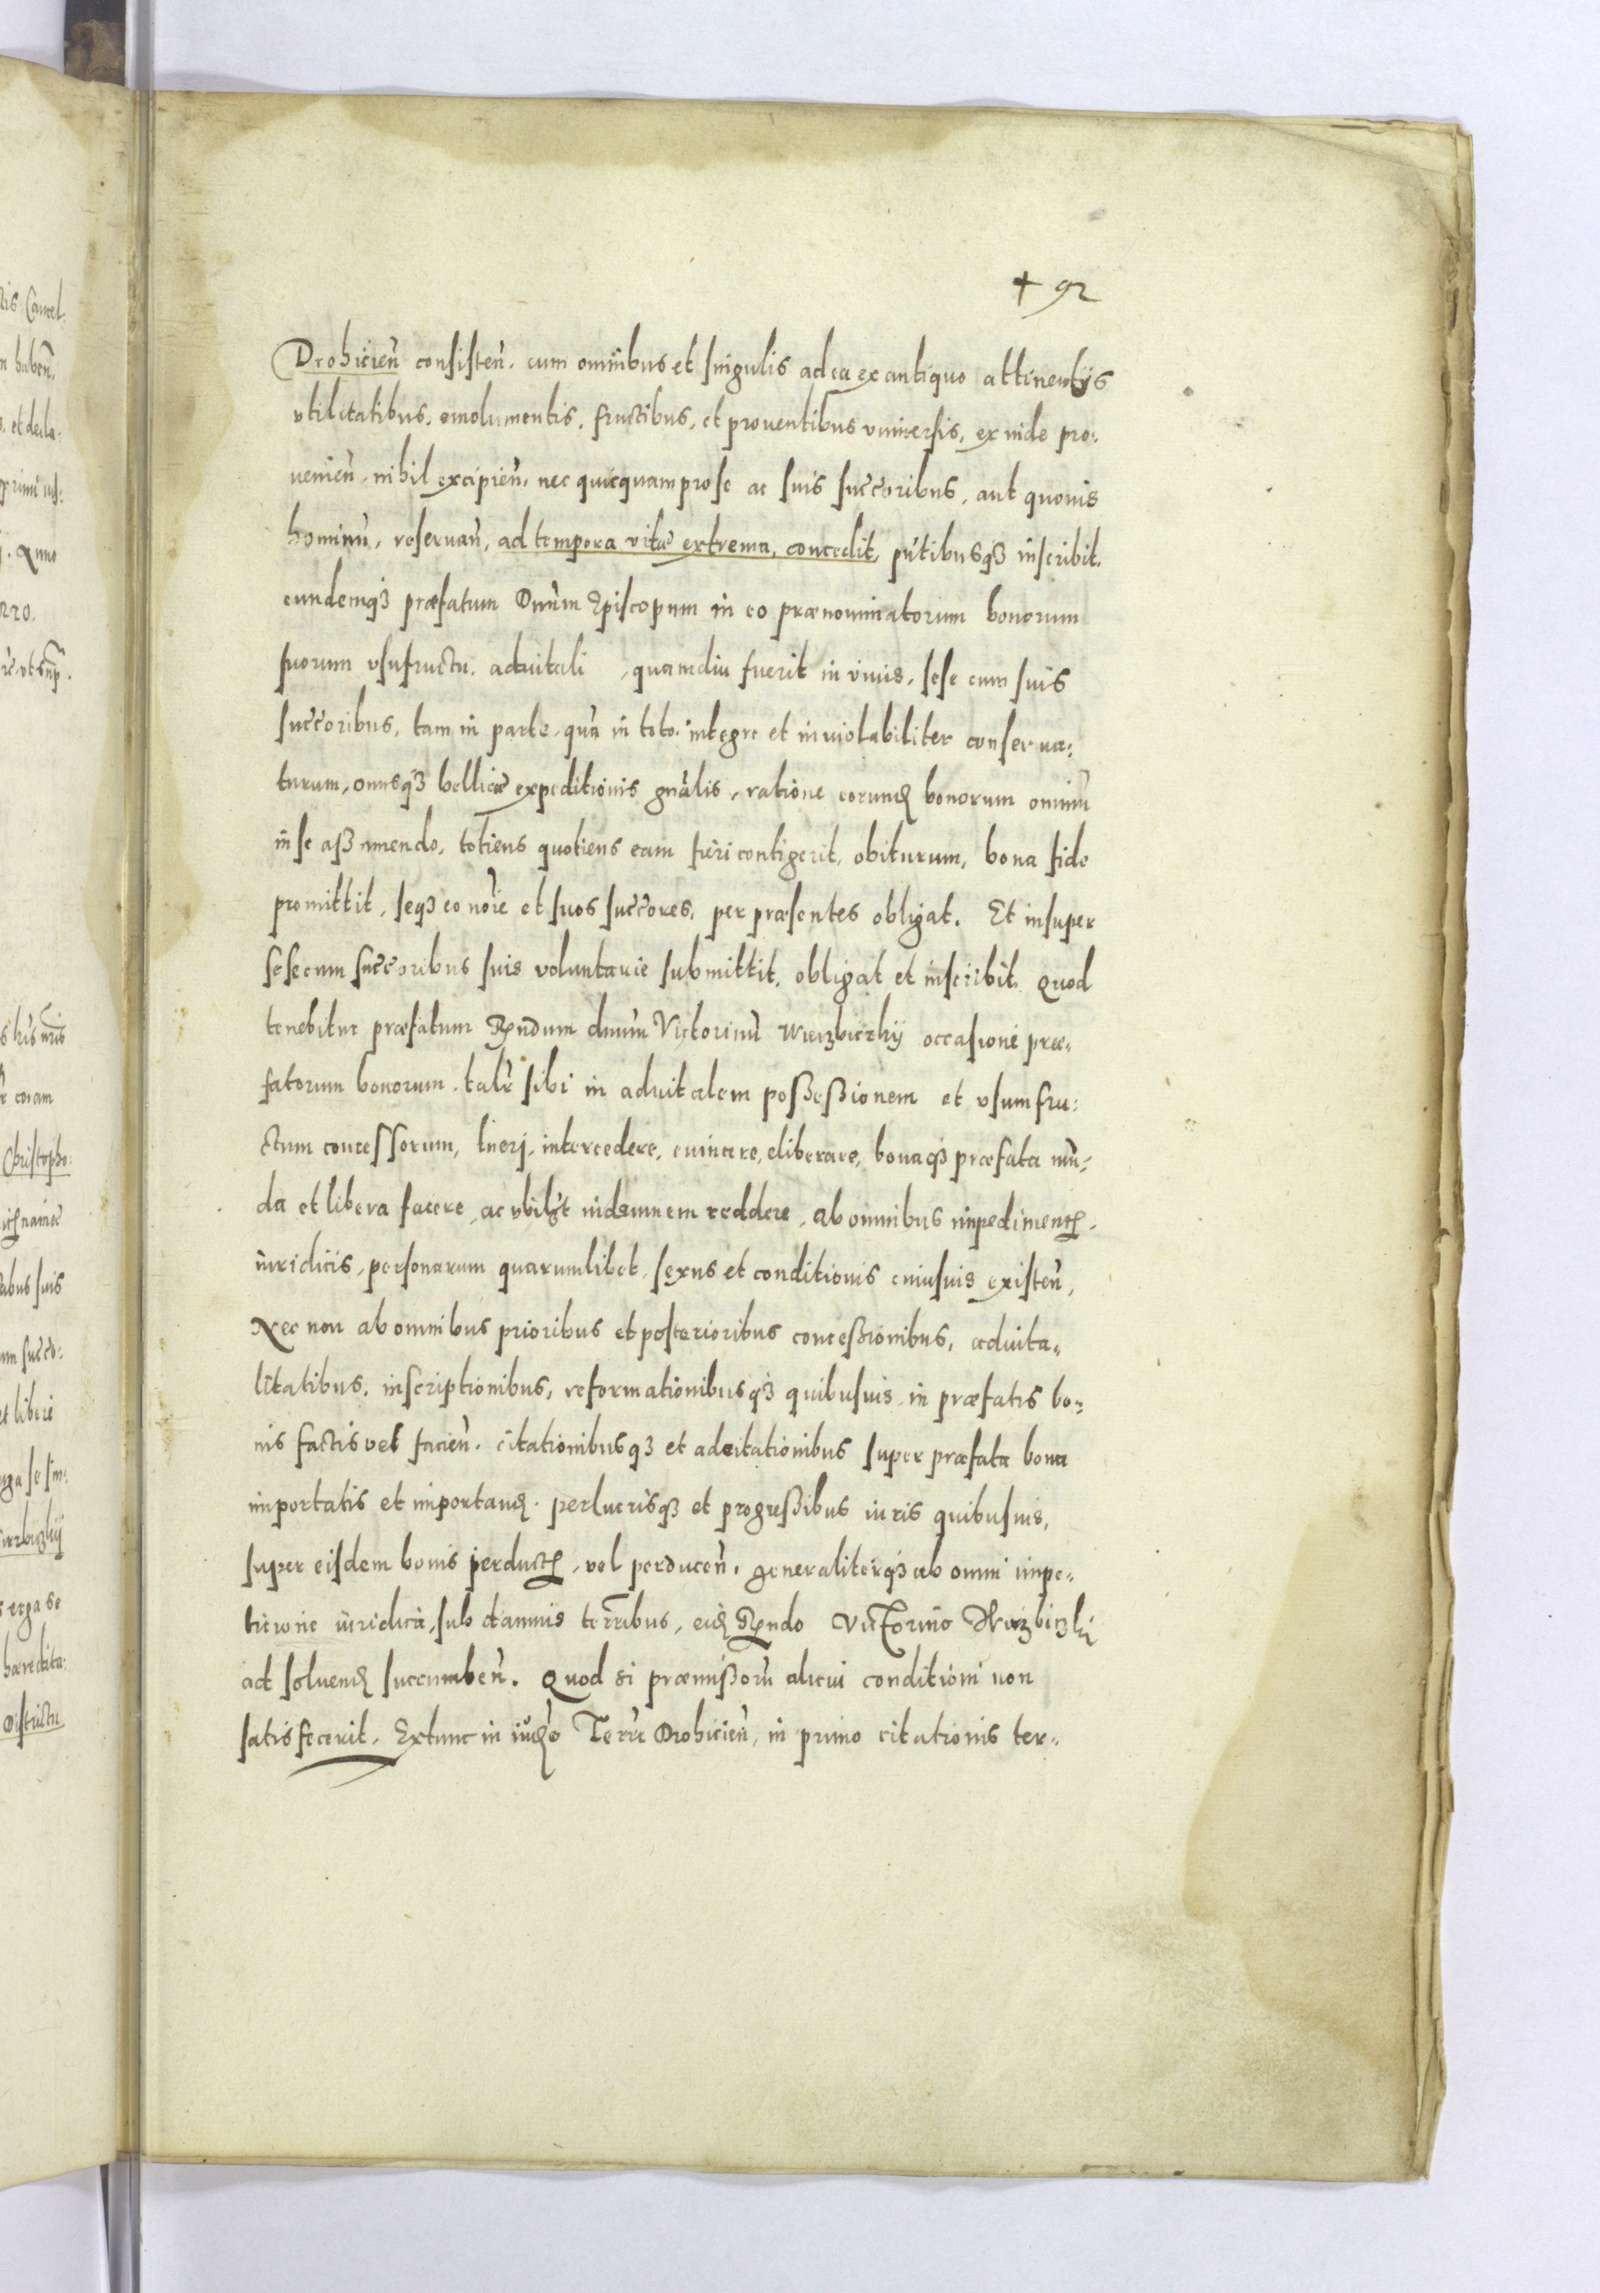 + 92
Drohicieñ consisteñ. cum omnibus et singulis ad ea ex antiquo attinentijs
vtilitatibus, emolumentis, fructibus, et prouentibus vniuersis, ex inde pro:
uenieñ, nihil excipieñ, nec quicquam pro se ac suis succ̃oribus, aut quouis
hominũ, reseruañ, ad tempora vitæ extrema, concedit, pñtibusqȝ inscribit.
eundemqȝ præfatum Dnũm Episcopum in eo prænominatorum bonorum
suorum vsufructu aduitali, quamdiu fuerit in viuis, sese cum suis
succ̃oribus, tam in parte, quã in toto integre et inuiolabiliter conserua:
turum, onusqȝ bellicæ expeditionis gñalis, ratione eorund bonorum omniũ
in se assumendo, totiens quotiens eam fieri contigerit, obiturum, bona fide
promittit, seqȝ eo nõie et suos succ̃ores, per præsentes obligat. Et insuper
sese cum succ̃oribus suis voluntarie submittit, obligat et inscribit. Quod
tenebitur præfatum Rndum dnũm Victorinũ Wierzbiczkij occasione præ:
fatorum bonorum talr̃ sibi in aduitalem possessionem et vsumfru:
ctum concessorum, tueri, intercedere, euincere, eliberare, bonaqȝ præfata mũ:
da et libera facere, ac vbilȝt indemnem reddere, ab omnibus impediment
iuridicis, personarum quarumlibet, sexus et conditionis cuiusuis existeñ,
Nec non ab omnibus prioribus et posterioribus concessionibus, aduita:
litatibus, inscriptionibus, reformationibusqȝ quibusuis in præfatis bo:
nis factis vel facieñ. citationibusqȝ et adcitationibus super præfata bona
importatis et importand. perlucrisqȝ et progressibus iuris quibusuis,
super eisdem bonis perduct, vel perduceñ, generaliterqȝ ab omni impe:
titione iuridica, sub damnis terr̃ibus, eid Rndo Victorino Wierzbiczki
ad soluend succumbeñ. Quod si præmissorũ alicui conditioni non
satisfecerit, Extunc in iud̃o Terr̃e Drohicieñ, in primo citationis ter: